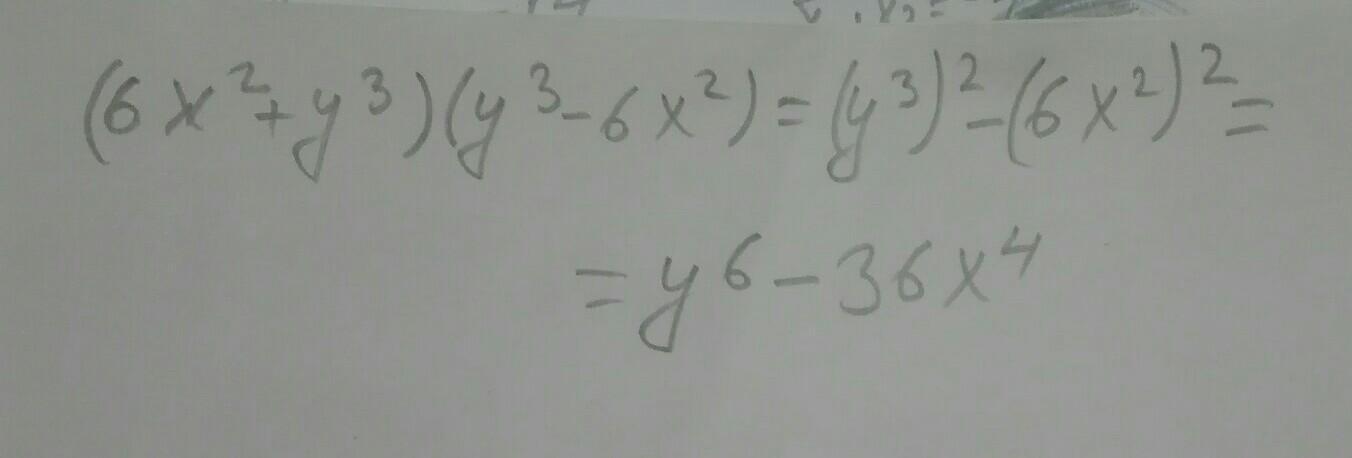 (6x²+y³)(y³-6x²)=(y³)²-(6x²)²=
=y⁶-36x⁴